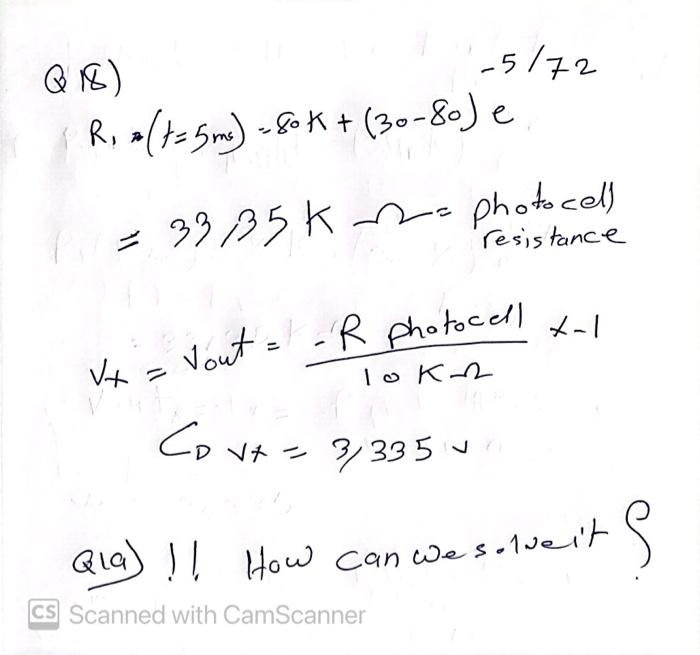 Q 18)
R, (t=5ms) = 80K + (30-80) e -5/72
= 33,35 K Ω = photocell resistance
Vx = Vout = -R photocell / 10 K Ω x-1
Vx = 3,335 v
Q19) !! How can we solve it ?
CS Scanned with CamScanner